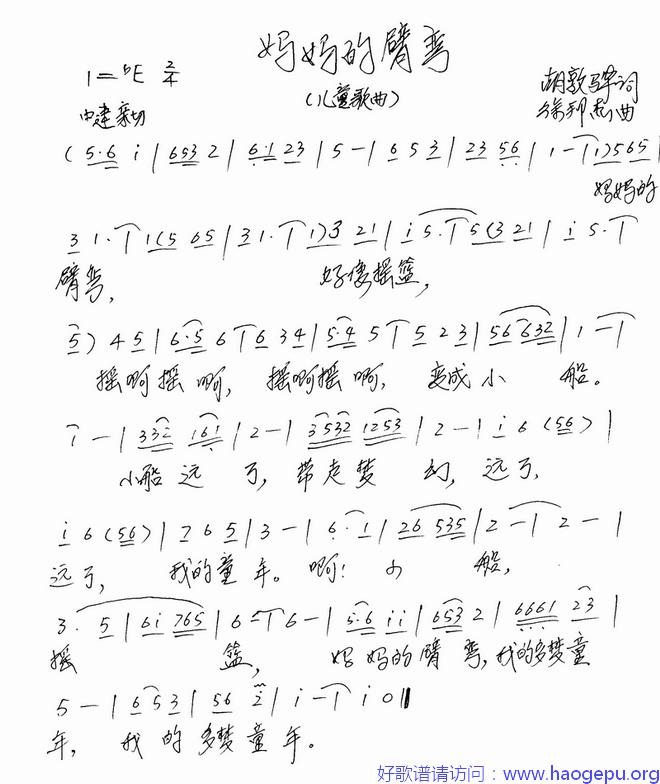 妈妈的臂弯
1=ᵇE 2/4
(儿童歌曲)
胡敦骅词
曲
中速亲切
(5·6 i|653 2|6·1 23|5-|6 5 3|23 56|1-|1)565|
妈妈的
3 1·|1(5 65|31·|1)3 21|i 5·|5(3 21|i 5·|
臂弯, 好像摇篮,
5)45|6·5 6|6 34|5·4 5|5 23|56 632|1-|
摇啊摇啊, 摇啊摇啊, 变成小船。
1-|332 161|2-|3532 1253|2-|i 6 (56)|
小船远了, 带走梦幻, 远了,
i 6 (56)|7 6 5|3-|6·1|26 535|2-|2-|
远了, 我的童年。啊! 小船,
3·5|6i 765|6-|6-|5·6 ii|653 2|6661 23|
摇篮, 妈妈的臂弯,我的多梦童
5-|6 5 3|56 2|i-|i 0‖
年, 我的多梦童年。
好歌谱请访问:www.haogepu.org